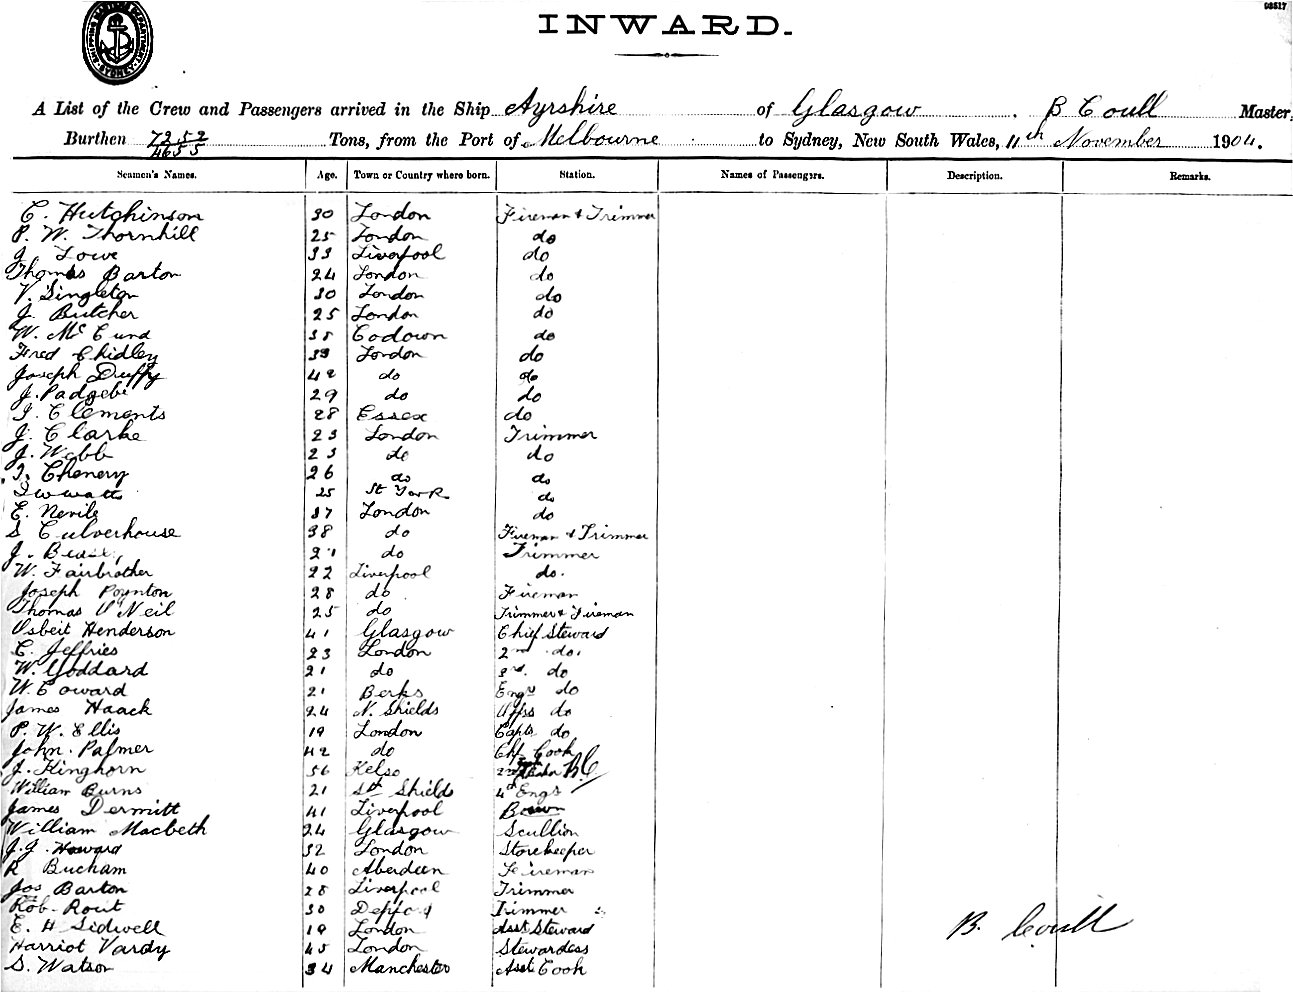 98517
SHIPPING MASTER'S DEPARTMENT SYDNEY
INWARD.
A List of the Crew and Passengers arrived in the Ship Ayrshire of Glasgow. B Coull Master,
Burthen 7252/4655 Tons, from the Port of Melbourne to Sydney, New South Wales, 11th November 1904.
Seamen's Names. Age. Town or Country where born. Station. Names of Passengers. Description. Remarks.
C. Hutchinson 30 London Fireman & Trimmer
P. W. Thornhill 25 London do
J. Lowe 33 Liverpool do
Thomas Barton 24 London do
V. Singleton 30 London do
J. Butcher 25 London do
W. Mc 35 do
Fred Chidley 39 London do
Joseph Duffy 42 do do
J. 29 do do
J. Clements 28 Essex do
J. Clarke 23 London Trimmer
J. Webb 23 do do
J. Chenery 26 do do
25 St York do
E. Nevile 37 London do
S Culverhouse 38 do Fireman & Trimmer
J. do Trimmer
W. Fairbrother 22 Liverpool do.
Joseph Poynton 28 do Fireman
Thomas O'Neil 25 do Trimmer & Fireman
Osbeit Henderson 41 Glasgow Chief Steward
C. Jeffries 23 London 2nd do.
W. Goddard 21 do 3rd. do
W. Coward 21 Berks Engrs do
James Haack 24 N. Shields Offs do
P. W. Ellis 19 London Capts do
John. Palmer 42 do Chf Cook
J. Kinghorn 56 Kelso 2nd Baker BC
William Burns 21 Sth Shields 4th Engr
James Dermitt 41 Liverpool Bosun
William Macbeth 24 Glasgow Scullion
J. J. Howard 32 London Storekeeper
R Bucham 40 Aberdeen Feireman
Jos Barton 28 Liverpool Trimmer
Rob. Rout 30 Depford Trimmer
E. H Sidwell 19 London Asst Steward B. Coull
Harriot Vardy 45 London Stewardess
S. Watson 34 Manchester Asst Cook